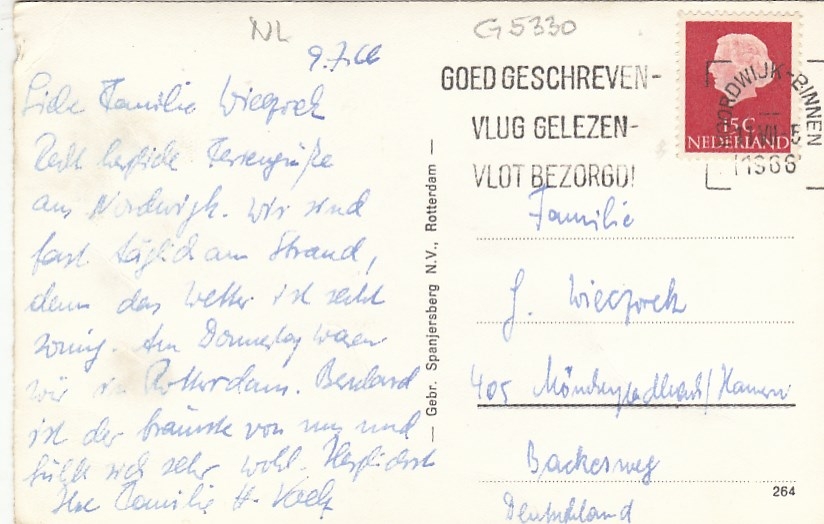 NL
G5330
9.7.66
Liebe Familie Wieczorek
Recht herzliche Feriengrüße
aus Nordwijk. Wir sind
fast täglich am Strand,
denn das Wetter ist recht
sonnig. Am Donnerstag waren
wir in Rotterdam. Bernhard
ist der bräunste von uns und
fühlt sich sehr wohl. Herzlichst
Ihre Familie H.
Gebr. Spanjersberg N.V., Rotterdam
GOED GESCHREVEN-
VLUG GELEZEN-
VLOT BEZORGD!
15 C
NEDERLAND
NOORDWIJK-BINNEN
VII
1966
Familie
G. Wieczorek
405 Mönchengladbach/Hamern
Backesweg
Deutschland
264